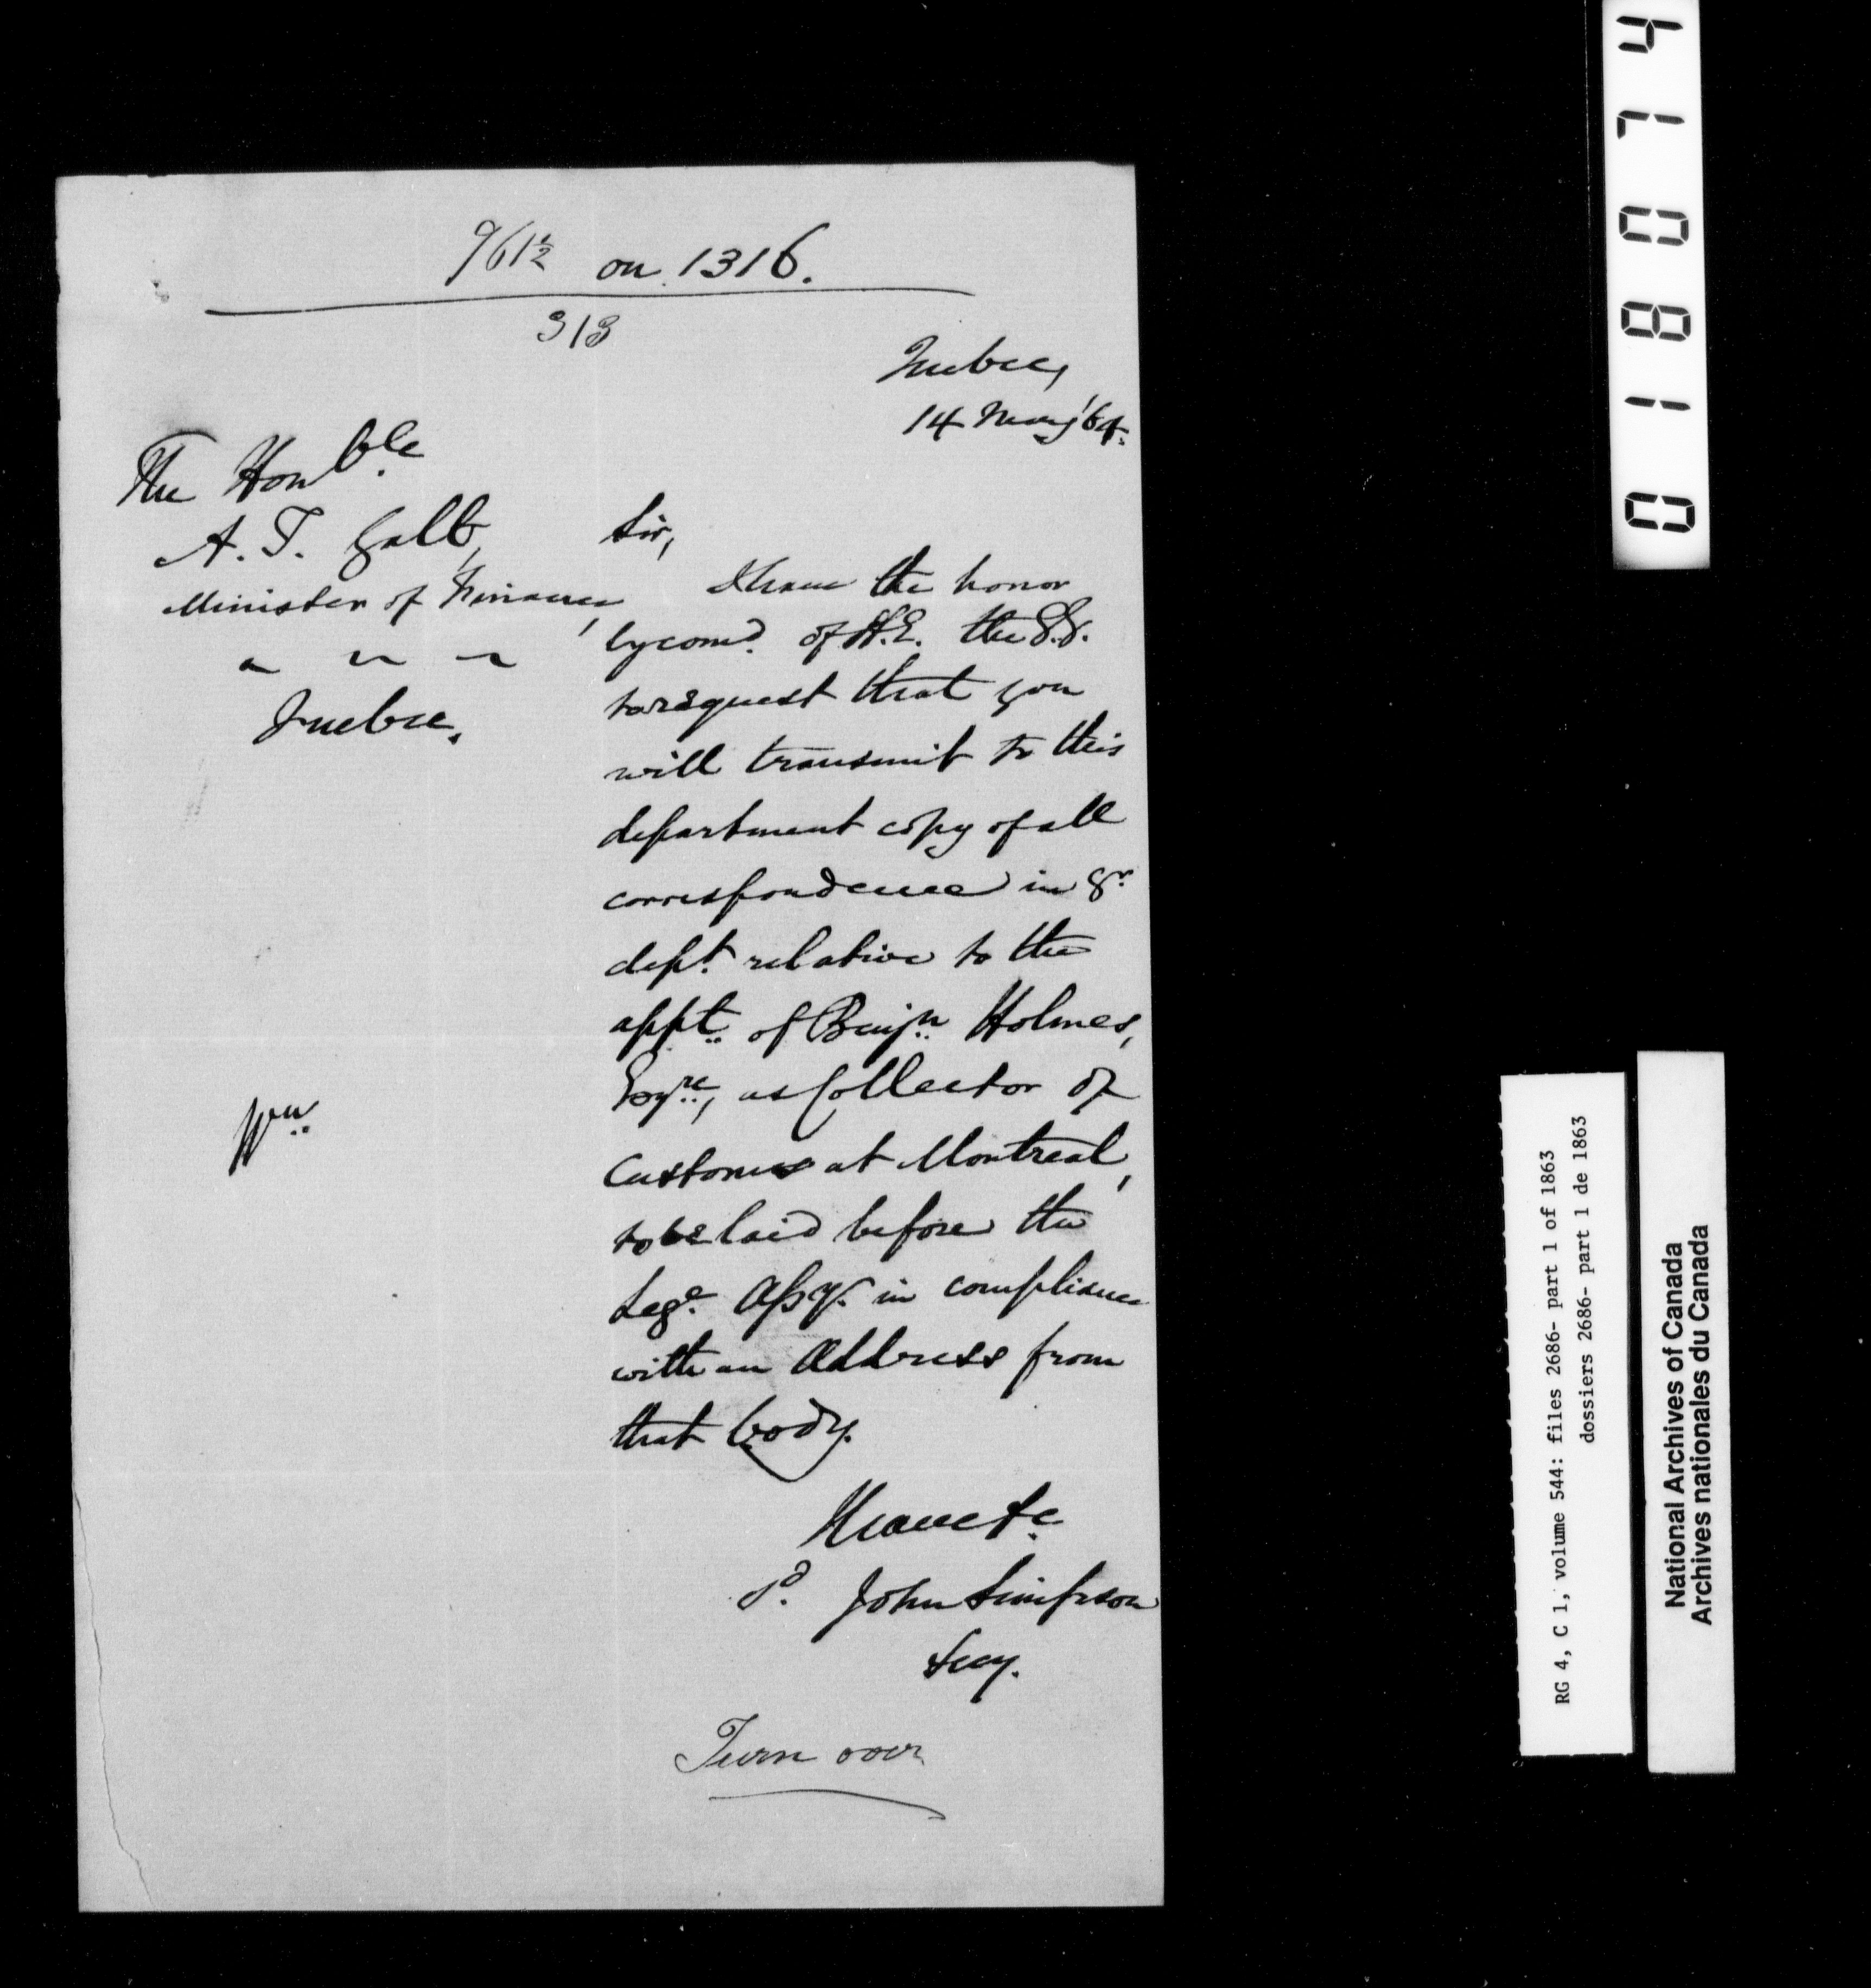 961½ on 1316.
313
Quebec,
14 May '64.
The Honble
A. T. Galt,
Minister of Finance,
" " "
Quebec.
Sir,
I have the honor
by comd. of H.E. the G.G.
to request that you
will transmit to this
department copy of all
correspondence in yr.
dept. relative to the
appt. of Benjn. Holmes,
Esqre., as Collector of
Customs at Montreal,
to be laid before the
Lege. Assy. in compliance
with an Address from
that body.
I have &c.
sd. John Simpson
Secy.
Turn over
018074
RG 4, C 1, volume 544: files 2686- part 1 of 1863
dossiers 2686- part 1 de 1863
National Archives of Canada
Archives nationales du Canada